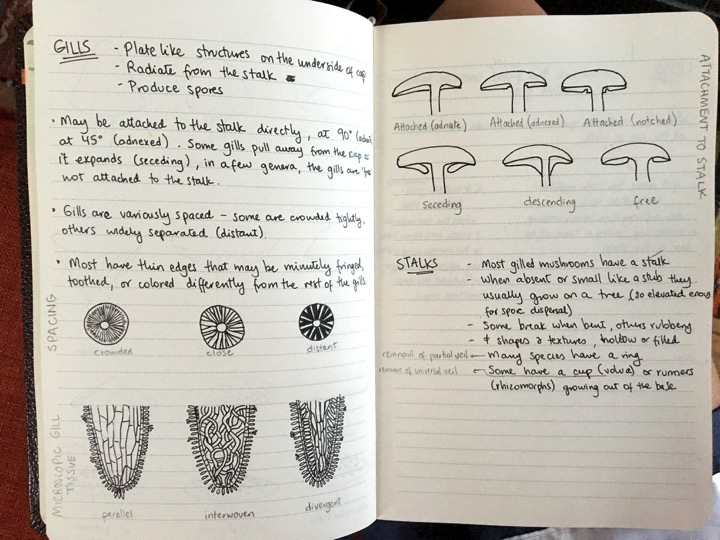 GILLS - Plate like structures on the underside of cap
- Radiate from the stalk
- Produce spores
• May be attached to the stalk directly, at 90°
at 45° (adnexed). Some gills pull away from the cap as
it expands (seceding), in a few genera, the gills are
not attached to the stalk.
• Gills are variously spaced – some are crowded tightly,
others widely separated (distant).
• Most have thin edges that may be minutely fringed,
toothed, or colored differently from the rest of the gills
SPACING
crowded
close
distant
MICROSCOPIC GILL
TISSUE
parallel
interwoven
divergent
ATTACHMENT TO STALK
Attached (adnate)
Attached (adnexed)
Attached (notched)
seceding
descending
free
STALKS - Most gilled mushrooms have a stalk
- When absent or small like a stub they
usually grow on a tree (so elevated enough
for spore dispersal)
- Some break when bent, others rubbery
- ≠ shapes & textures, hollow or filled
remnant of partial veil ← Many species have a ring
remnant of universal veil ← Some have a cup (volva) or runners
(rhizomorphs) growing out of the base